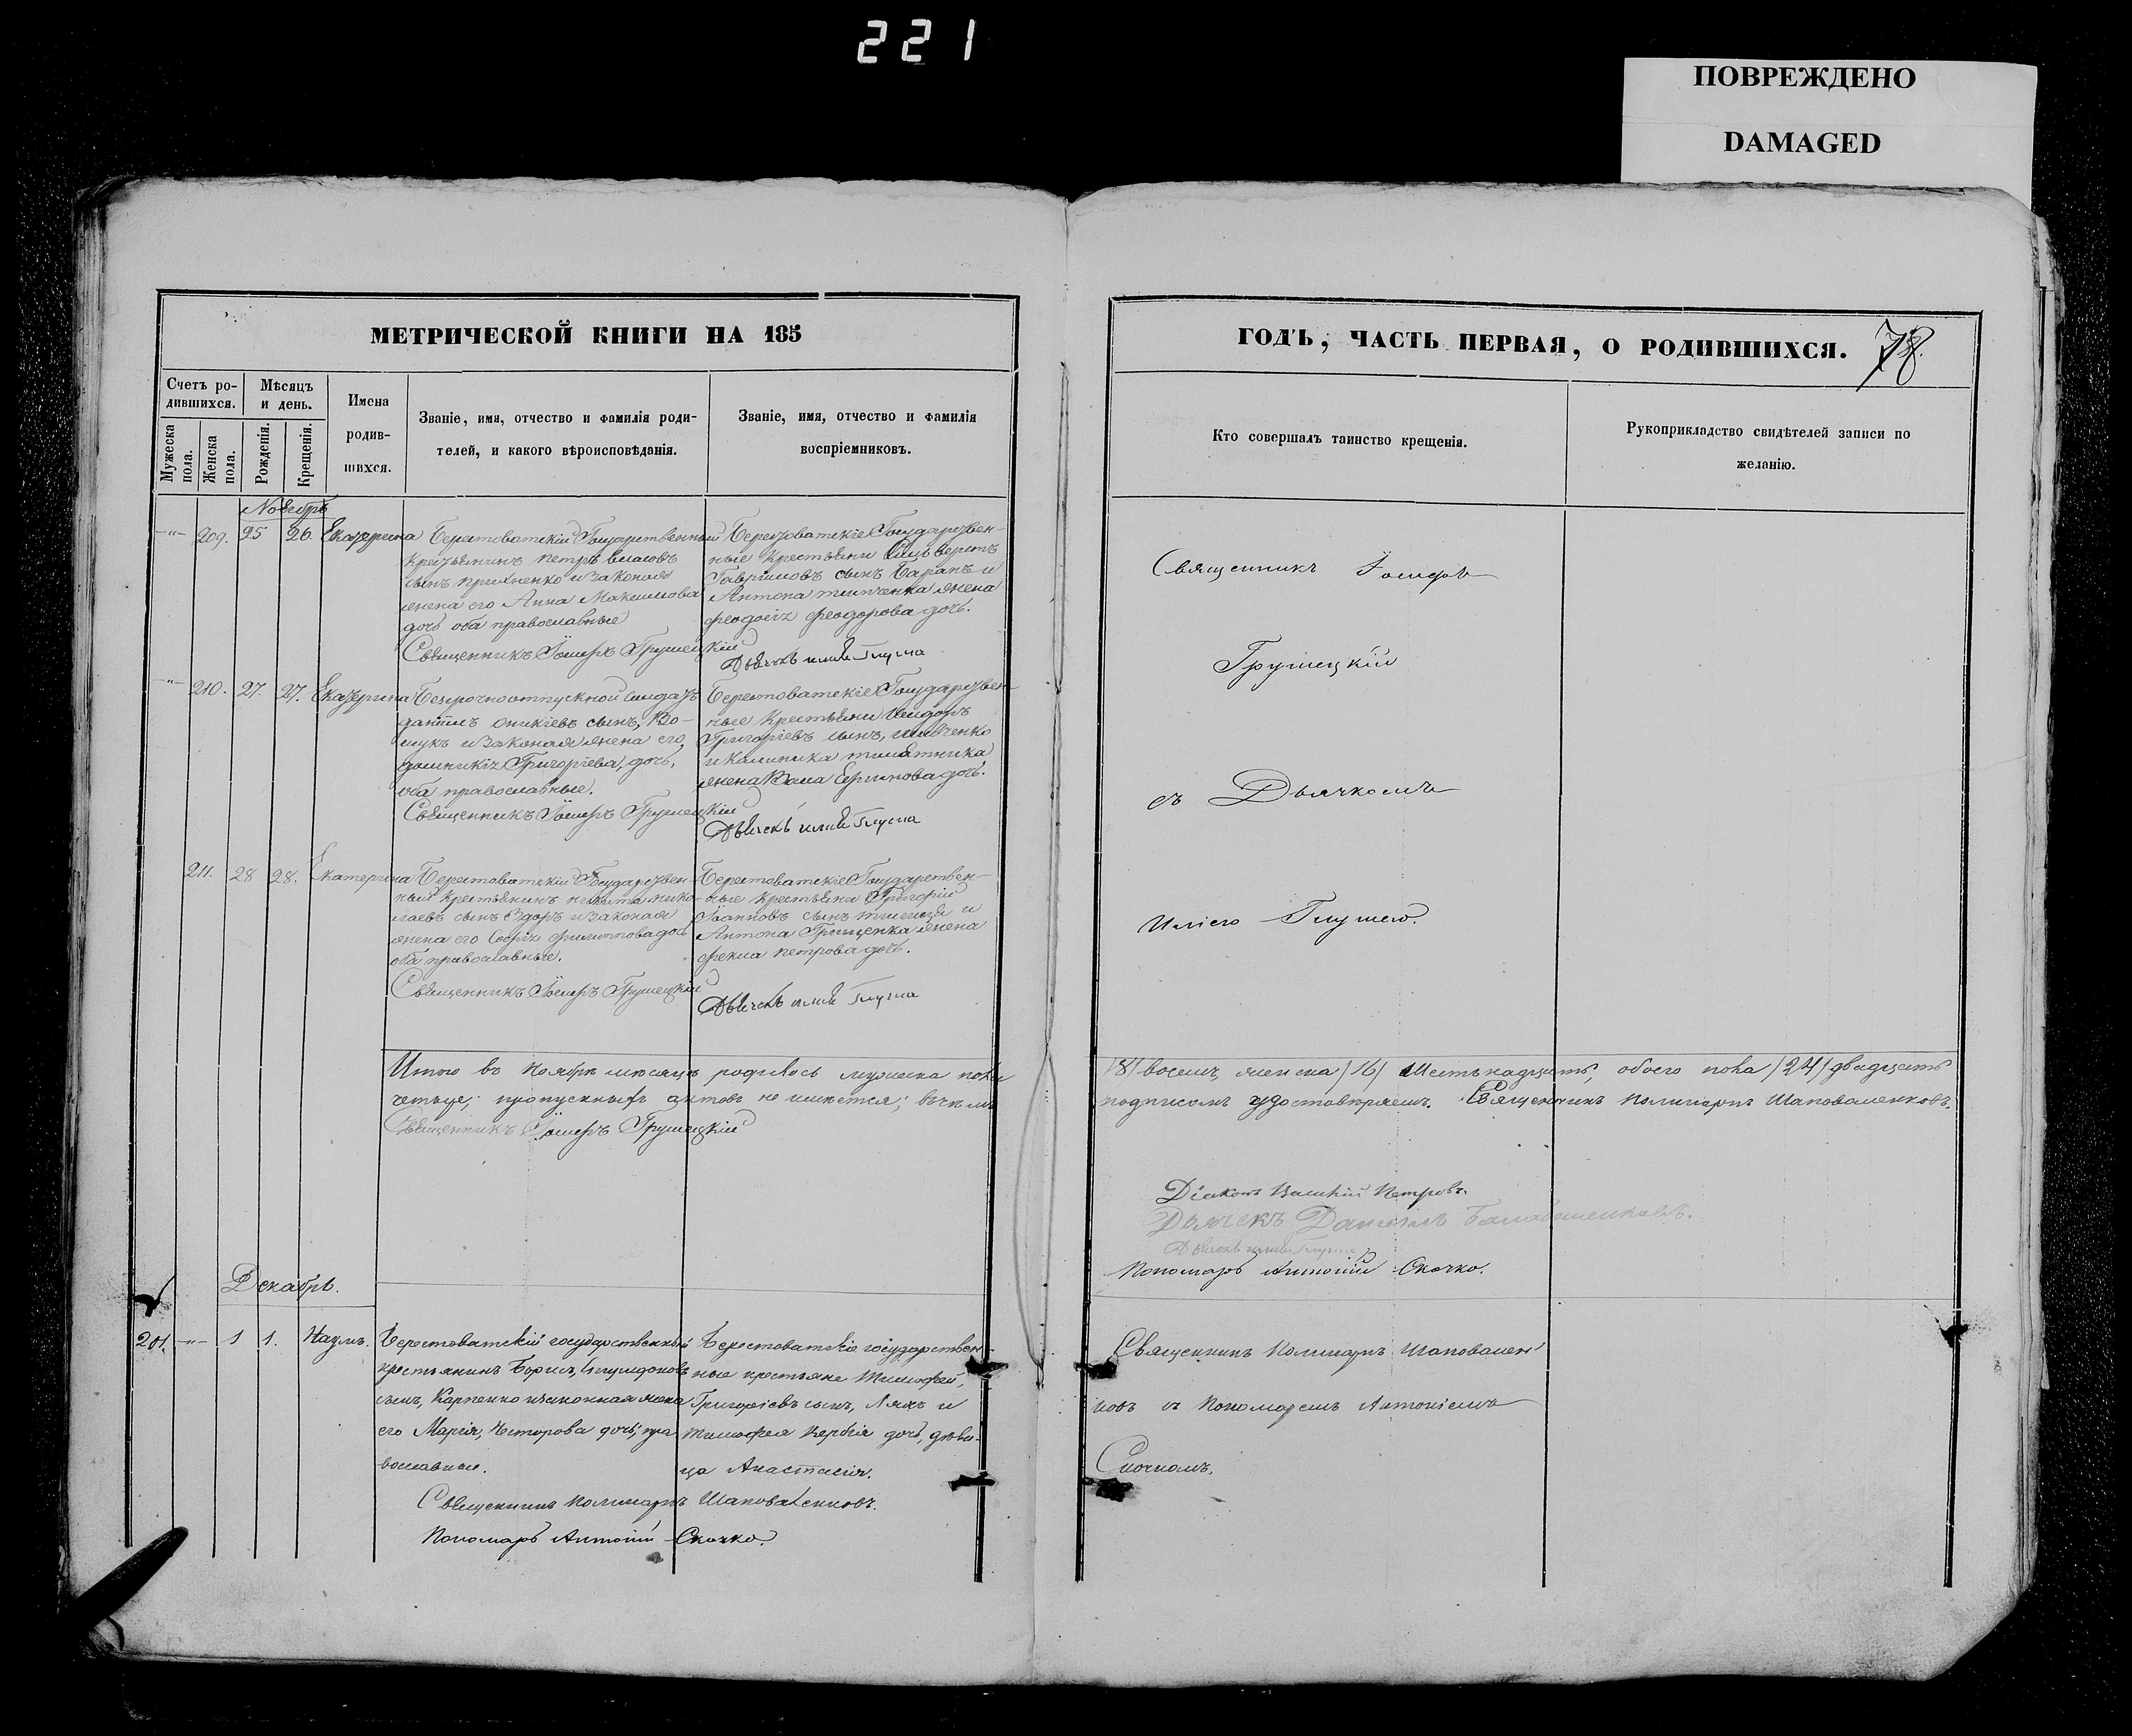 221
ПОВРЕЖДЕНО
DAMAGED
МЕТРИЧЕСКОЙ КНИГИ НА 185
ГОДЪ, ЧАСТЬ ПЕРВАЯ, О РОДИВШИХСЯ. 78.
Счетъ ро-
дившихся.
Мужеска
пола.
Женска
пола.
Мѣсяцъ
и день.
Рожденія.
Крещенія.
Имена
родив-
шихся.
Званіе, имя, отчество и фамилія роди-
телей, и какого вѣроисповѣданія.
Званіе, имя, отчество и фамилія
воспріемниковъ.
Кто совершалъ таинство крещенія.
Рукоприкладство свидѣтелей записи по
желанію.
Ноябрь
209. 25 26. Екатерина
Берестоватскій Государственный
крестьянинъ Петръ Власовъ
сынъ и законная
жена его Анна Максимова
дочь оба православные
Священникъ Іосифъ Грушецкій
Берестоватскіе Государствен-
ные крестьяни
Гавриловъ сынъ Баранъ и
Антона жена
Феодосія Феодорова дочь.
Дьячекъ Илія Глуша
Священникъ Іосифъ
Грушецкій
съ Дьячкомъ
Иліею Глушею.
210. 27. 27. Екатерина
Безсрочноотпускной солдатъ
Даніилъ сынъ,
и законная жена его,
Домникія Григоріева, дочь,
оба православные.
Священникъ Іосифъ Грушецкій
Берестоватскіе Государствен-
ные крестьяни Исидоръ
Григоріевъ сынъ,
и Калиника
жена дочь.
Дьячекъ Илія Глуша
211. 28 28. Екатерина
Берестоватскій Государствен-
ный крестьянинъ Никита Нико-
лаевъ сынъ и законная
жена его Софія Филиппова дочь
оба православные.
Священникъ Іосифъ Грушецкій
Берестоватскіе Государствен-
ные крестьяни Григорій
Іоанновъ сынъ и
Антона Грищенка жена
Фекла Петрова дочь.
Дьячекъ Илія Глуша
Итого въ Ноябрѣ мѣсяцѣ родилось мужеска пола /8/ восемь, женска /16/ шестьнадцать, обоего пола /24/ двадцать
четыре; пропускныхъ актовъ не имѣется; въ чемъ подписомъ удостовѣряемъ. Священникъ Полікарпъ Шаповаленковъ.
Священникъ Іосифъ Грушецкій
Діаконъ Василій Петровъ.
Дьячекъ Даніилъ
Дьячекъ Илія Глуша
Пономарь Антоній Скочко.
Декабрь.
201. 1 1. Наумъ.
Берестоватскій государственный
крестьянинъ Борисъ, Спиридоновъ
сынъ, Карпенко и законная жена
его Марія, Несторова дочь; пра-
вославные.
Священникъ Полікарпъ Шаповаленковъ.
Пономарь Антоній Скочко.
Берестоватскіе государствен-
ные крестьяне Тимофей,
Григоріевъ сынъ, Ляхъ и
Тимофея дочь, дѣви-
ца Анастасія.
Священникъ Полікарпъ Шаповален-
ковъ съ Пономаремъ Антоніемъ
Скочкомъ.